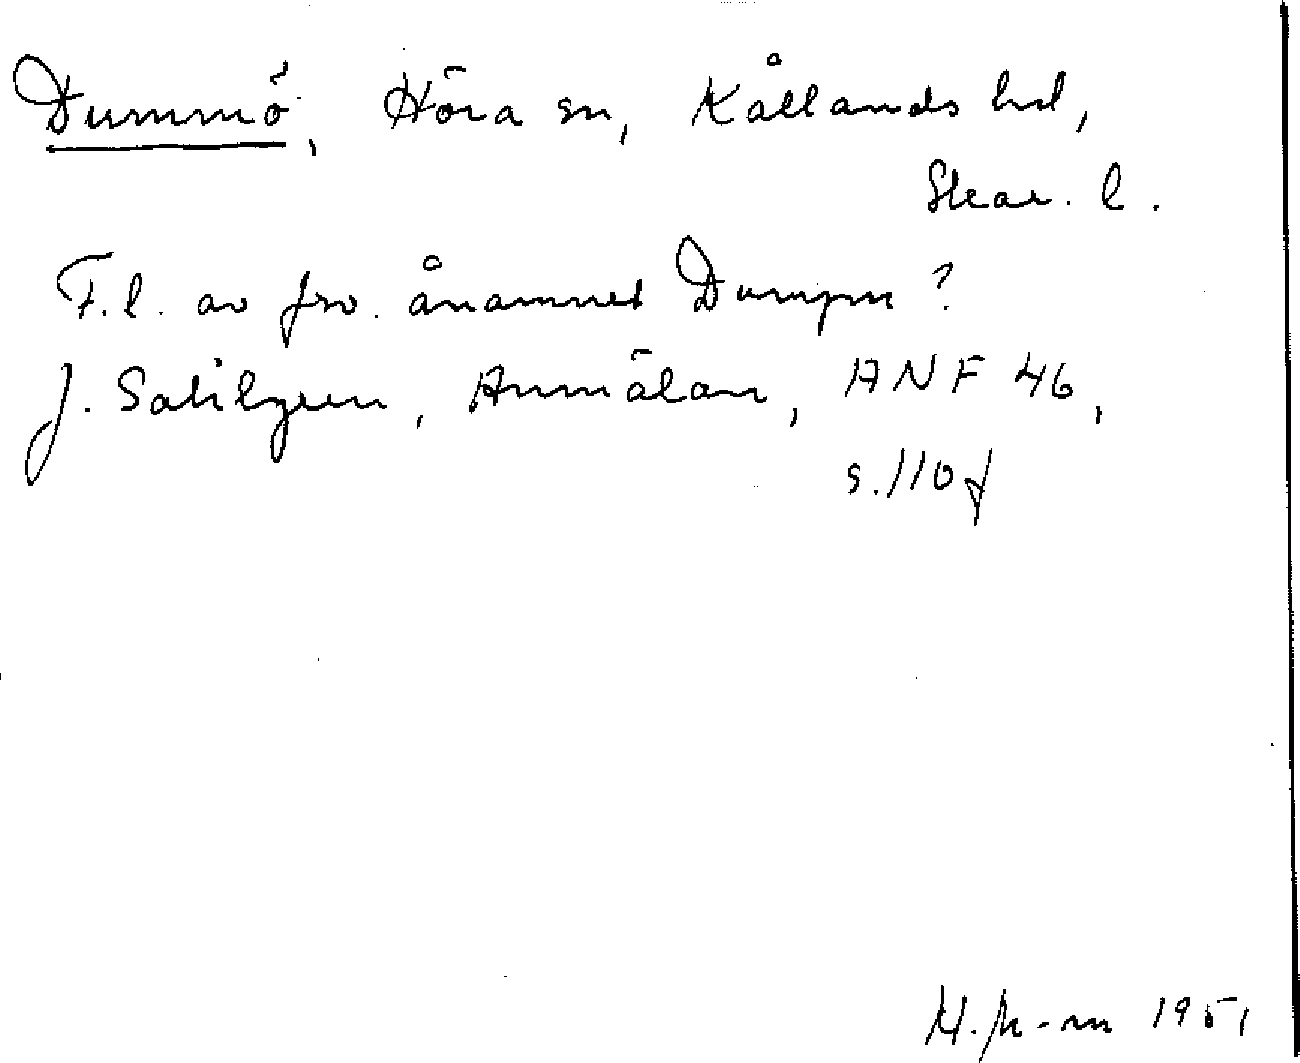 Dummö, Höra sn, Kållands hd,
Skar. l.
F.l. av fsv. ånamnet Dumpn?
J. Sahlgren, Anmälan, ANF 46,
s. 110 f
1951